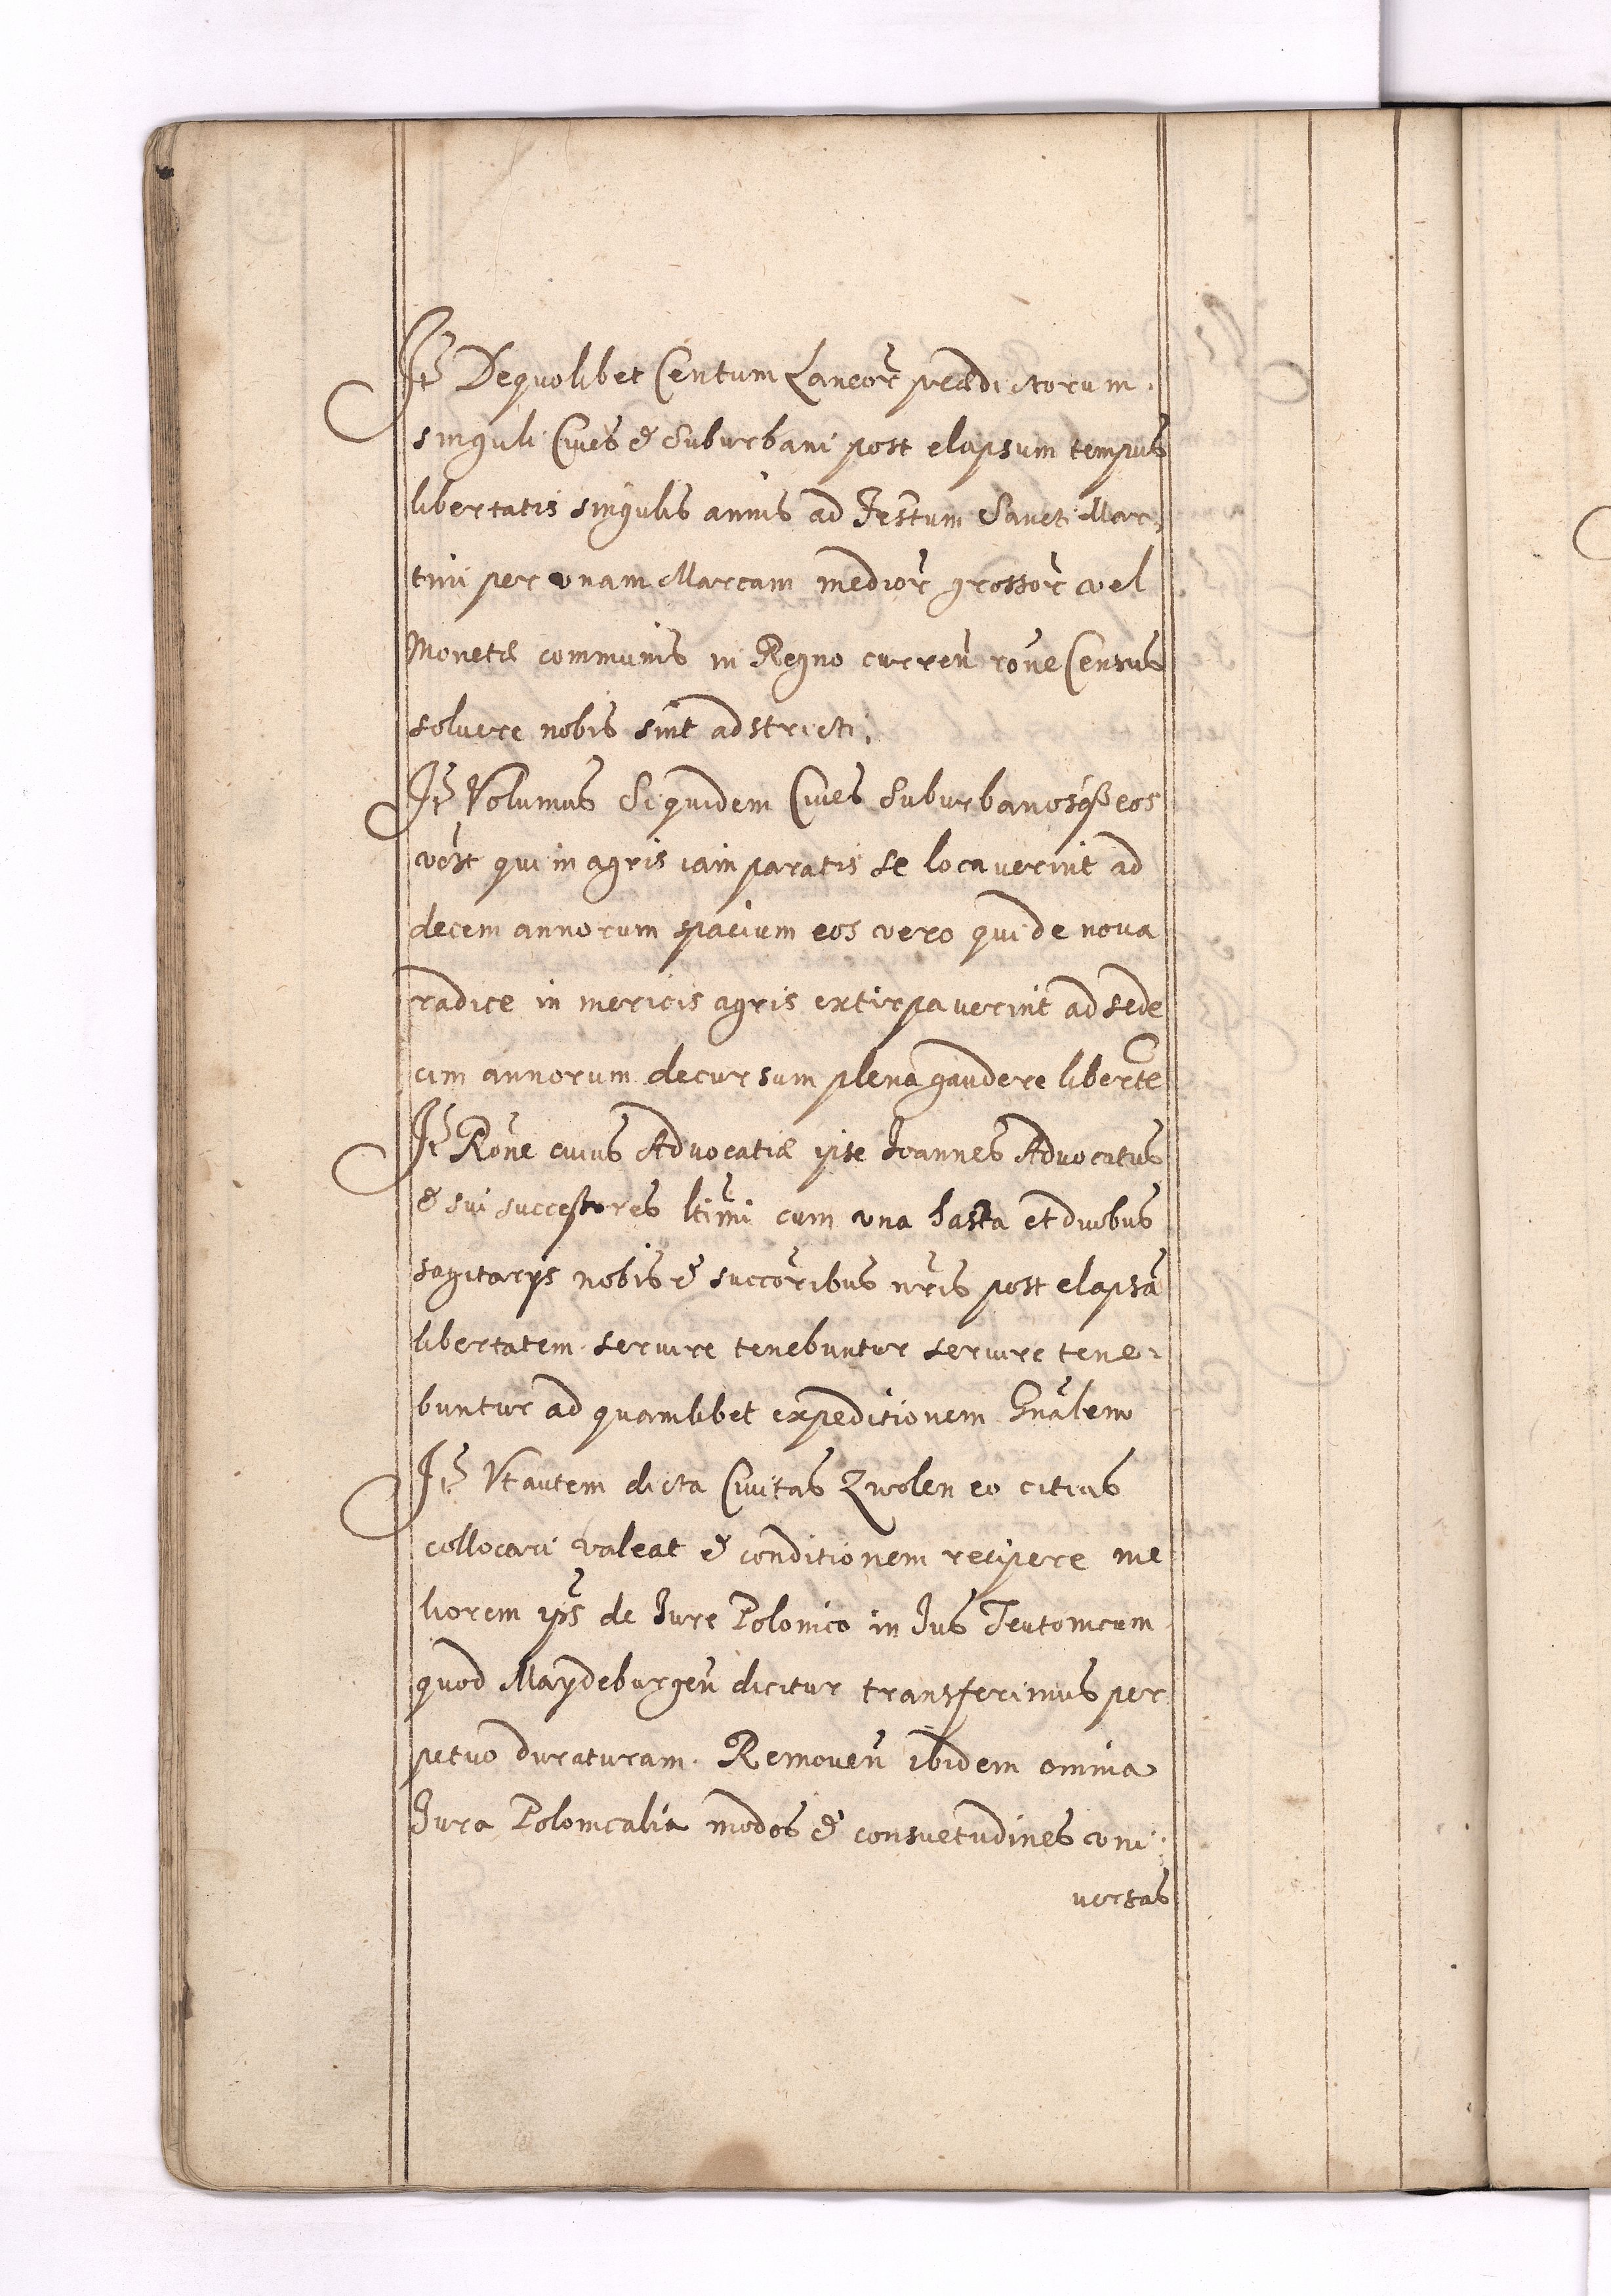 Itē De quolibet Centum Laneor̄ praedictorum
singuli Cives & Suburbani post elapsum tempus
libertatis singulis annis ad Festum Sancti Mar,
tini per vnam Marcam medior̄ grossor̄ vel
Monetæ communis in Regno curren̄ rōne Census
soluere nobis sint adstricti.
Itē Volumus Siquidem Ciues Suburbanosq̄ eos
vēst qui in agris iam paratis se locauerint ad
decem annorum spacium eos vero qui de noua
radice in mericis agris extirpauerint ad sede
cim annorum decursum plenā gaudere libertē
Itē Rōne cuius Aduocatiæ ipse Ioannes Aduocatus
& sui successores ltīmi cum vna hasta et duobus
sagitarys nobis & succōribus nr̄is post elapsā
libertatem seruire tenebuntur seruire tene:
buntur ad quamlibet expeditionem Gnālem
Itē Vt autem dicta Ciuitas Zwolen eo citius
collocari valeat & conditionem recipere me
liorem ips̄ de Iure Polonico in Ius Teutonicum
quod Maydeburgen̄ dicitur transferimus per
petuo duraturam. Remouen̄ ibidem omnia
Iura Polonicalia modos & consuetudines vni:
uersas